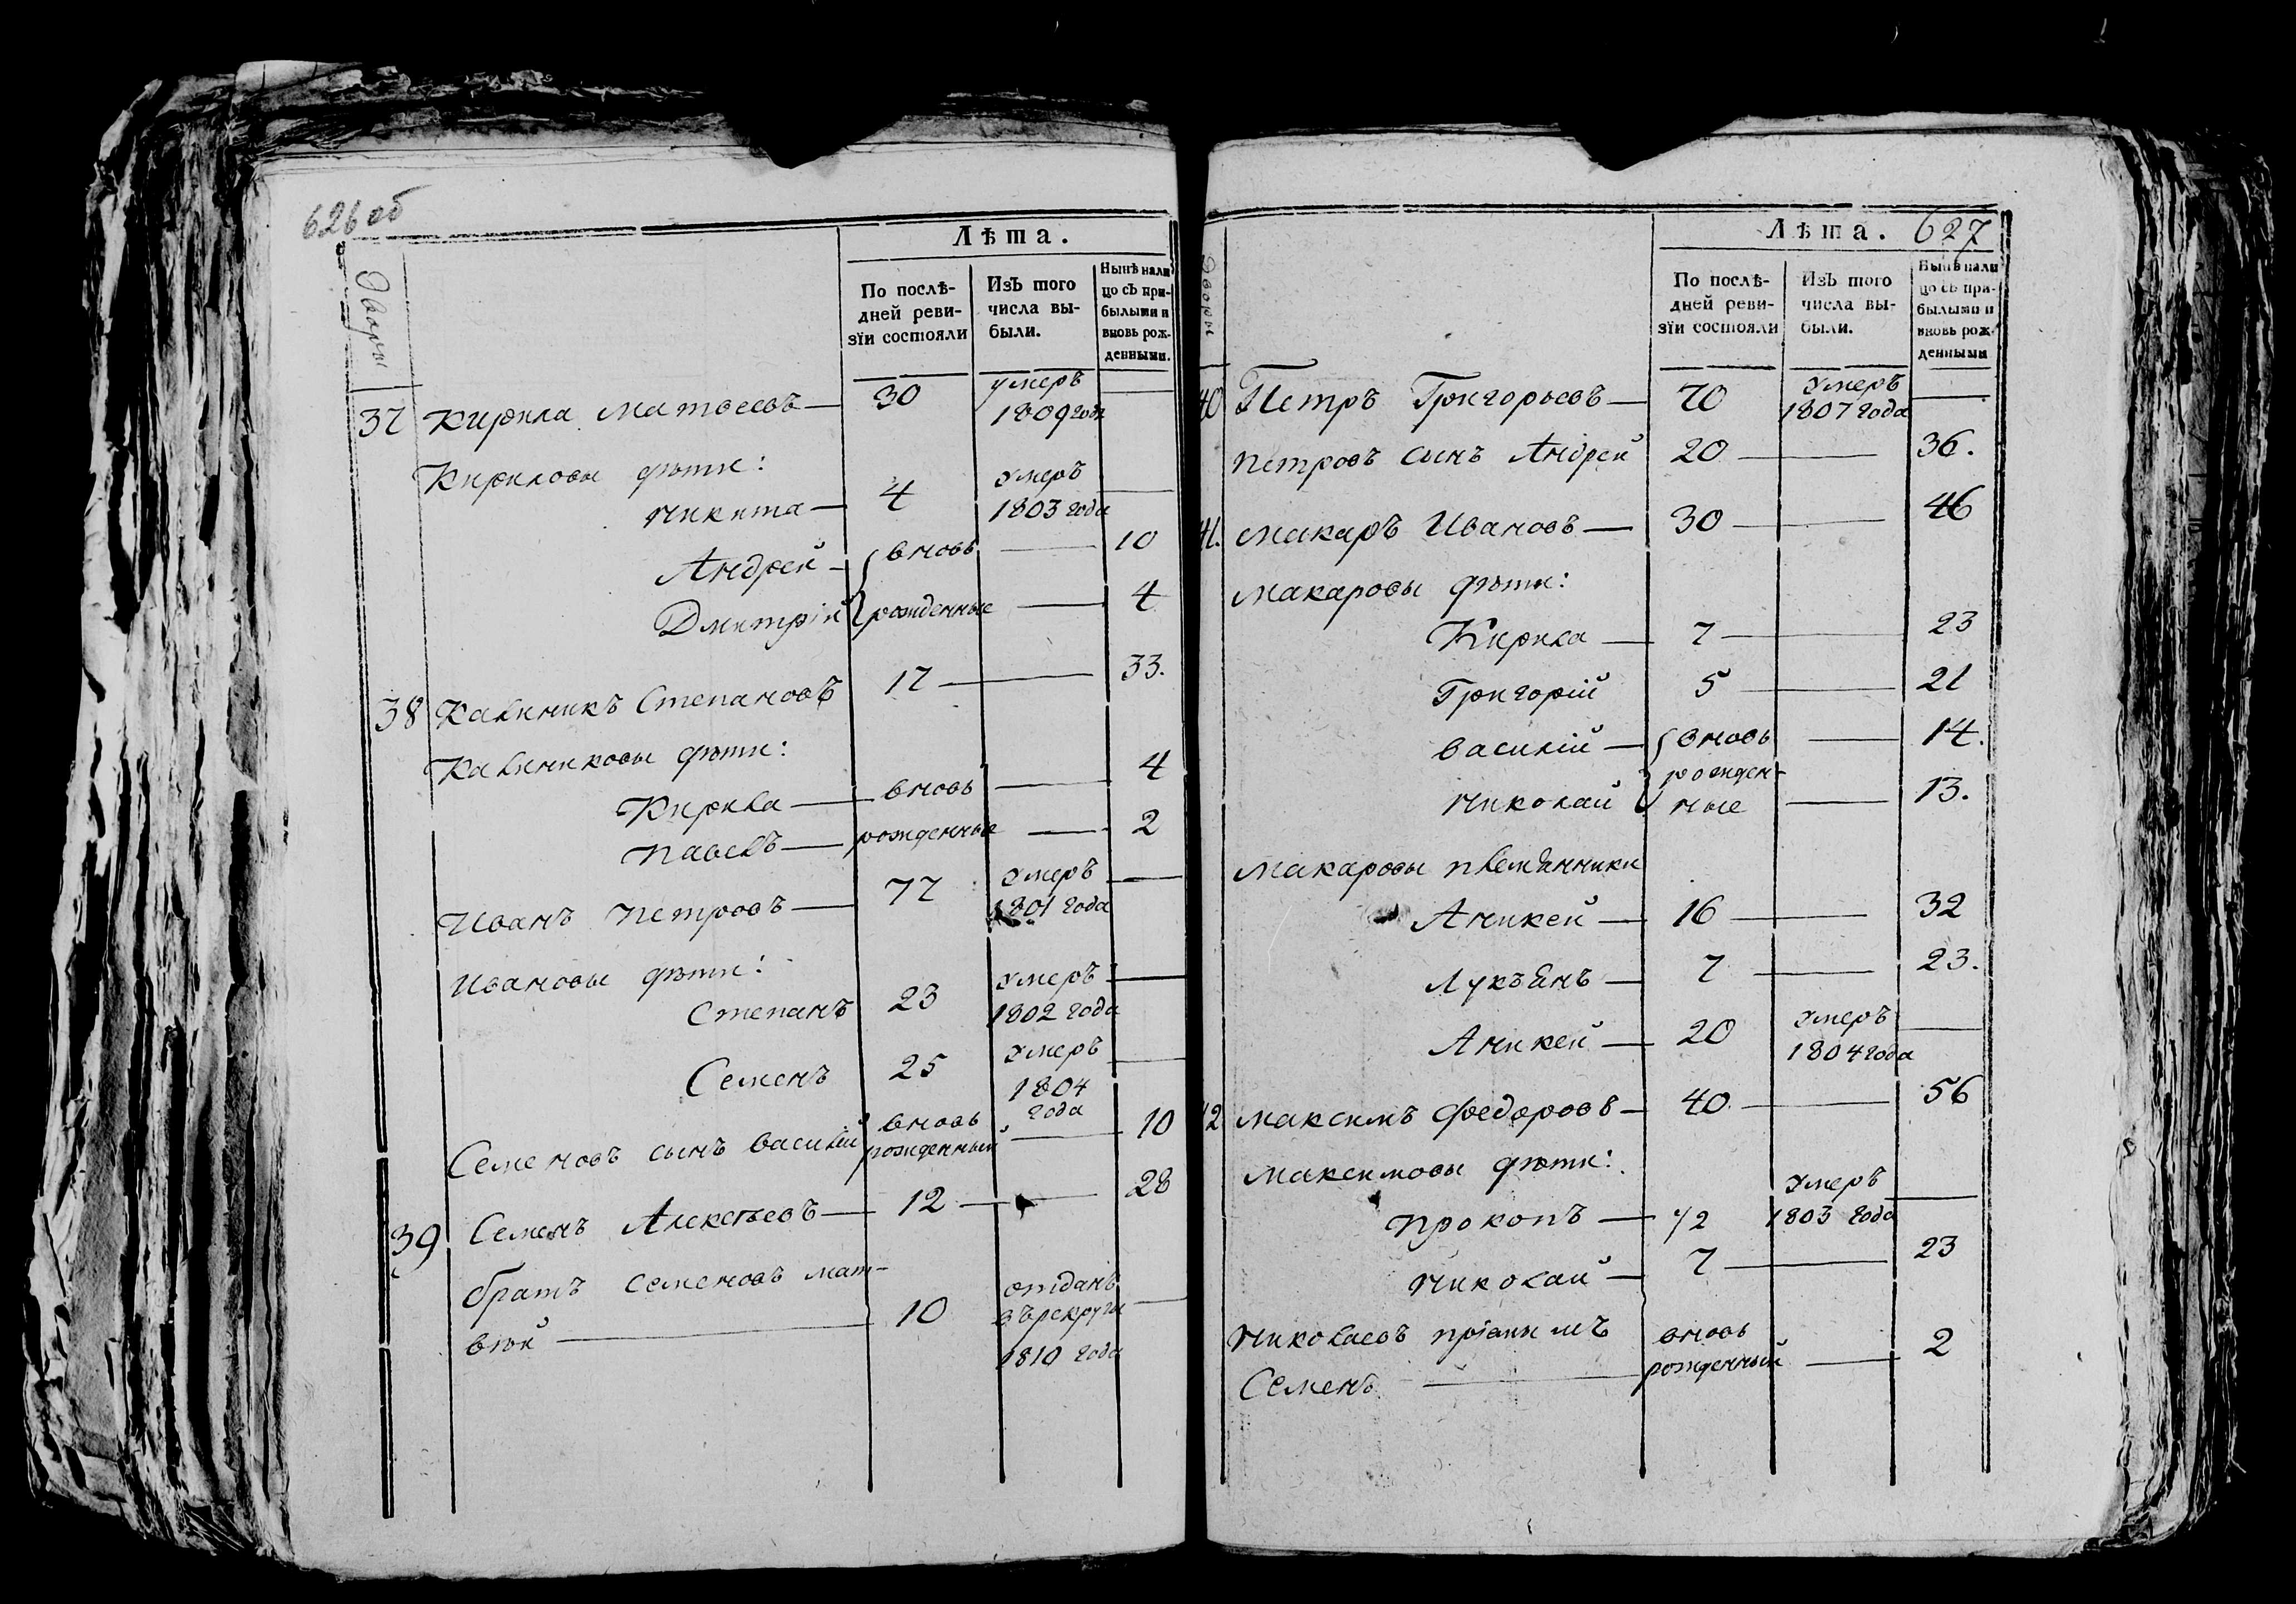 626 об
Лѣта.
Дворы
По послѣ-
дней реви-
зіи состояли
Изъ того
числа вы-
были.
Нынѣ нали
цо съ при-
былыми и
вновь рож-
денными.
37 Кирила Матвеевъ — 30 умеръ 1809 года —
Кириловы дѣти:
Никита — 4 умеръ 1803 года —
Андрей — вновь — 10
Дмитрій рожденные — 4
38 Калиникъ Степановъ 17 — 33.
Калиниковы дѣти:
Кирила — вновь — 4
Павелъ — рожденные — 2
Иванъ Петровъ — 77 умеръ 1801 года —
Ивановы дѣти:
Степанъ 23 умеръ 1802 года —
Семенъ 25 умеръ 1804 года —
Семеновъ сынъ Василій вновь рожденный — 10
39 Семенъ Алексѣевъ — 12 — 28
братъ Семеновъ Мат-
вѣй — 10 отданъ въ рекруты 1810 года —
Лѣта. 627
Дворы
По послѣ-
дней реви-
зіи состояли
Изъ того
числа вы-
были.
Нынѣ нали
цо съ при-
былыми и
вновь рож-
денными
40 Петръ Григорьевъ — 70 умеръ 1807 года —
Петровъ сынъ Андрей 20 — 36.
41. Макаръ Ивановъ — 30 — 46
Макаровы дѣти:
Кирила — 7 — 23
Григорій 5 — 21
Василій — вновь — 14.
Николай рожден-
ные — 13.
Макаровы племянники
Аникей — 16 — 32
Лукъянъ — 7 — 23.
Аникей — 20 умеръ 1804 года —
42 Максимъ Федоровъ — 40 — 56
Максимовы дѣти:
Прокопъ — 1/2 умеръ 1803 года —
Николай — 7 — 23
Николаевъ пріимышъ вновь
Семенъ — рожденный — 2